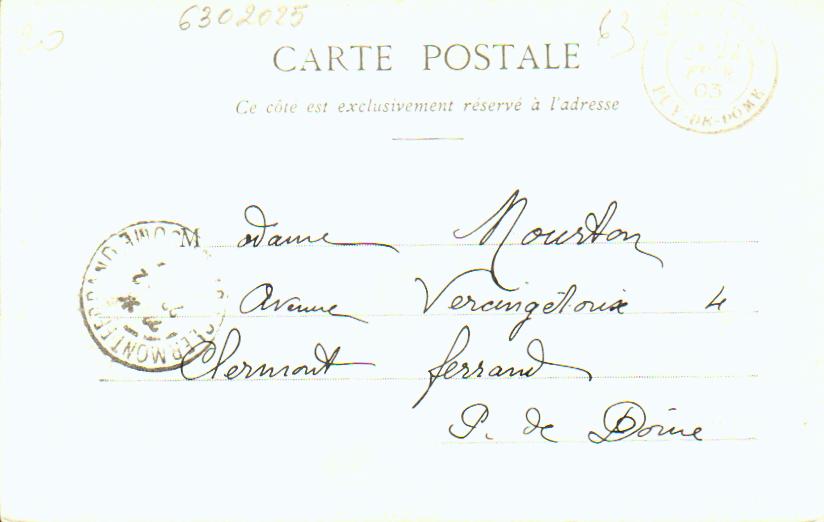 20
6302025
63
CARTE POSTALE
Ce côté est exclusivement réservé à l'adresse
03
PUY-DE-DÔME
CLERMONT-FERRAND
Madame Mourton
Avenue Vercingétorix 4
Clermont ferrand
P. de Dôme